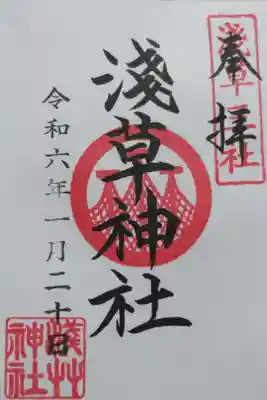 奉拝
浅草
社
淺草神社
令和六年一月二十日
淺草
神社